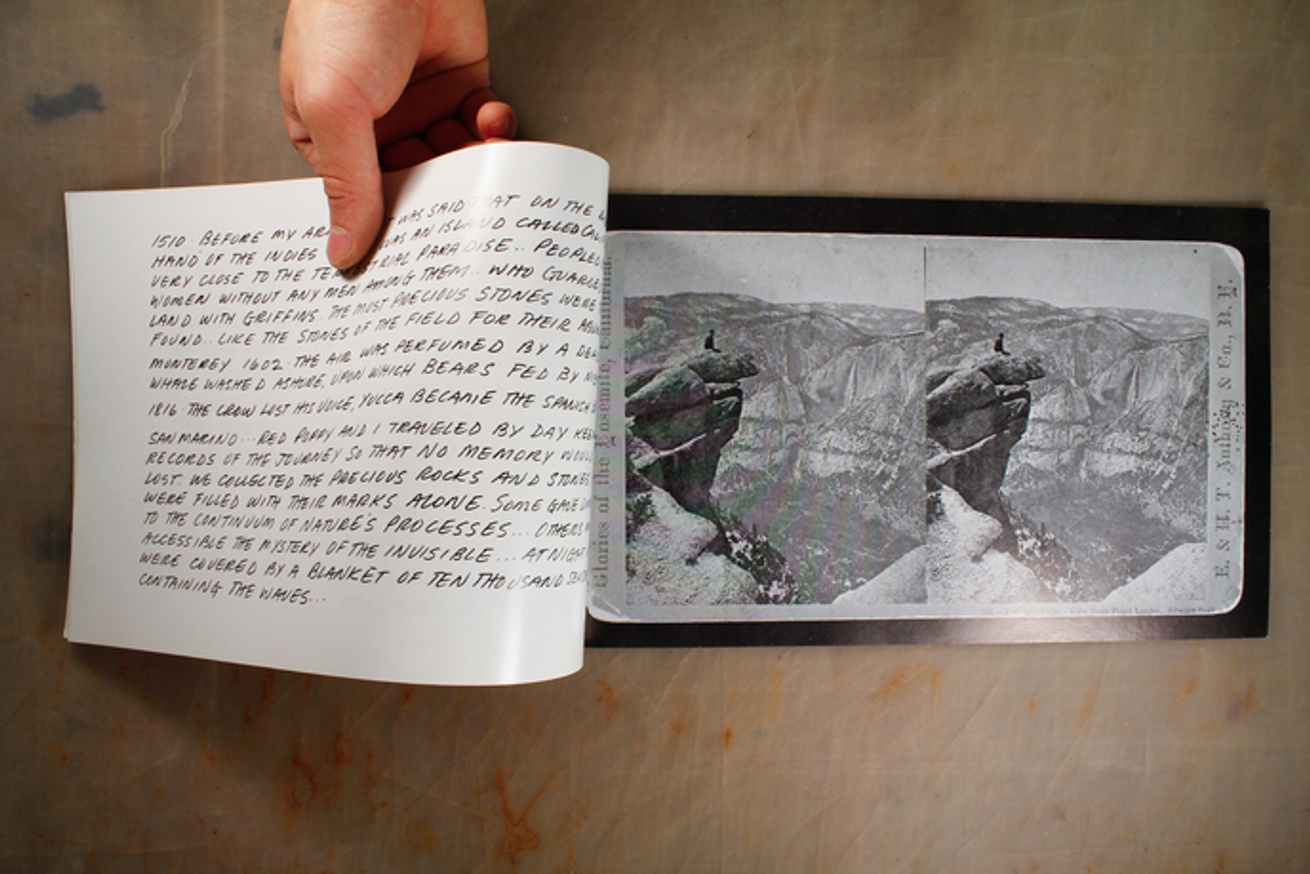 1510 · BEFORE MY WAS SAID THAT ON THE
HAND OF THE INDIES WAS AN ISLAND CALLED
VERY CLOSE TO THE PARADISE.. PEOPLED
WOMEN WITHOUT ANY MEN AMONG THEM.. WHO
LAND WITH GRIFFINS THE MOST PRECIOUS STONES WERE
FOUND.. LIKE THE STONES OF THE FIELD FOR THEIR
MONTEREY 1602 · THE AIR WAS PERFUMED BY A
WHALE WASHED ASHORE, UPON WHICH BEARS FED BY
1816 · THE CROW LOST HIS VOICE, YUCCA BECAME THE SPANISH
SAN MARINO ... RED POPPY AND I TRAVELED BY DAY
RECORDS OF THE JOURNEY SO THAT NO MEMORY
LOST. WE COLLECTED THE PRECIOUS ROCKS AND
WERE FILLED WITH THEIR MARKS ALONE. SOME GAVE
TO THE CONTINUUM OF NATURE'S PROCESSES... OTHERS
ACCESSIBLE THE MYSTERY OF THE INVISIBLE... AT NIGHT
WERE COVERED BY A BLANKET OF TEN THOUSAND
CONTAINING THE WAVES...
Glories of the Yosemite, California.
E. & H. T. Anthony & Co.,